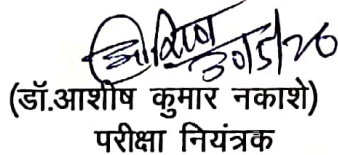 30/5/20
(डॉ.आशीष कुमार नकाशे)
परीक्षा नियंत्रक